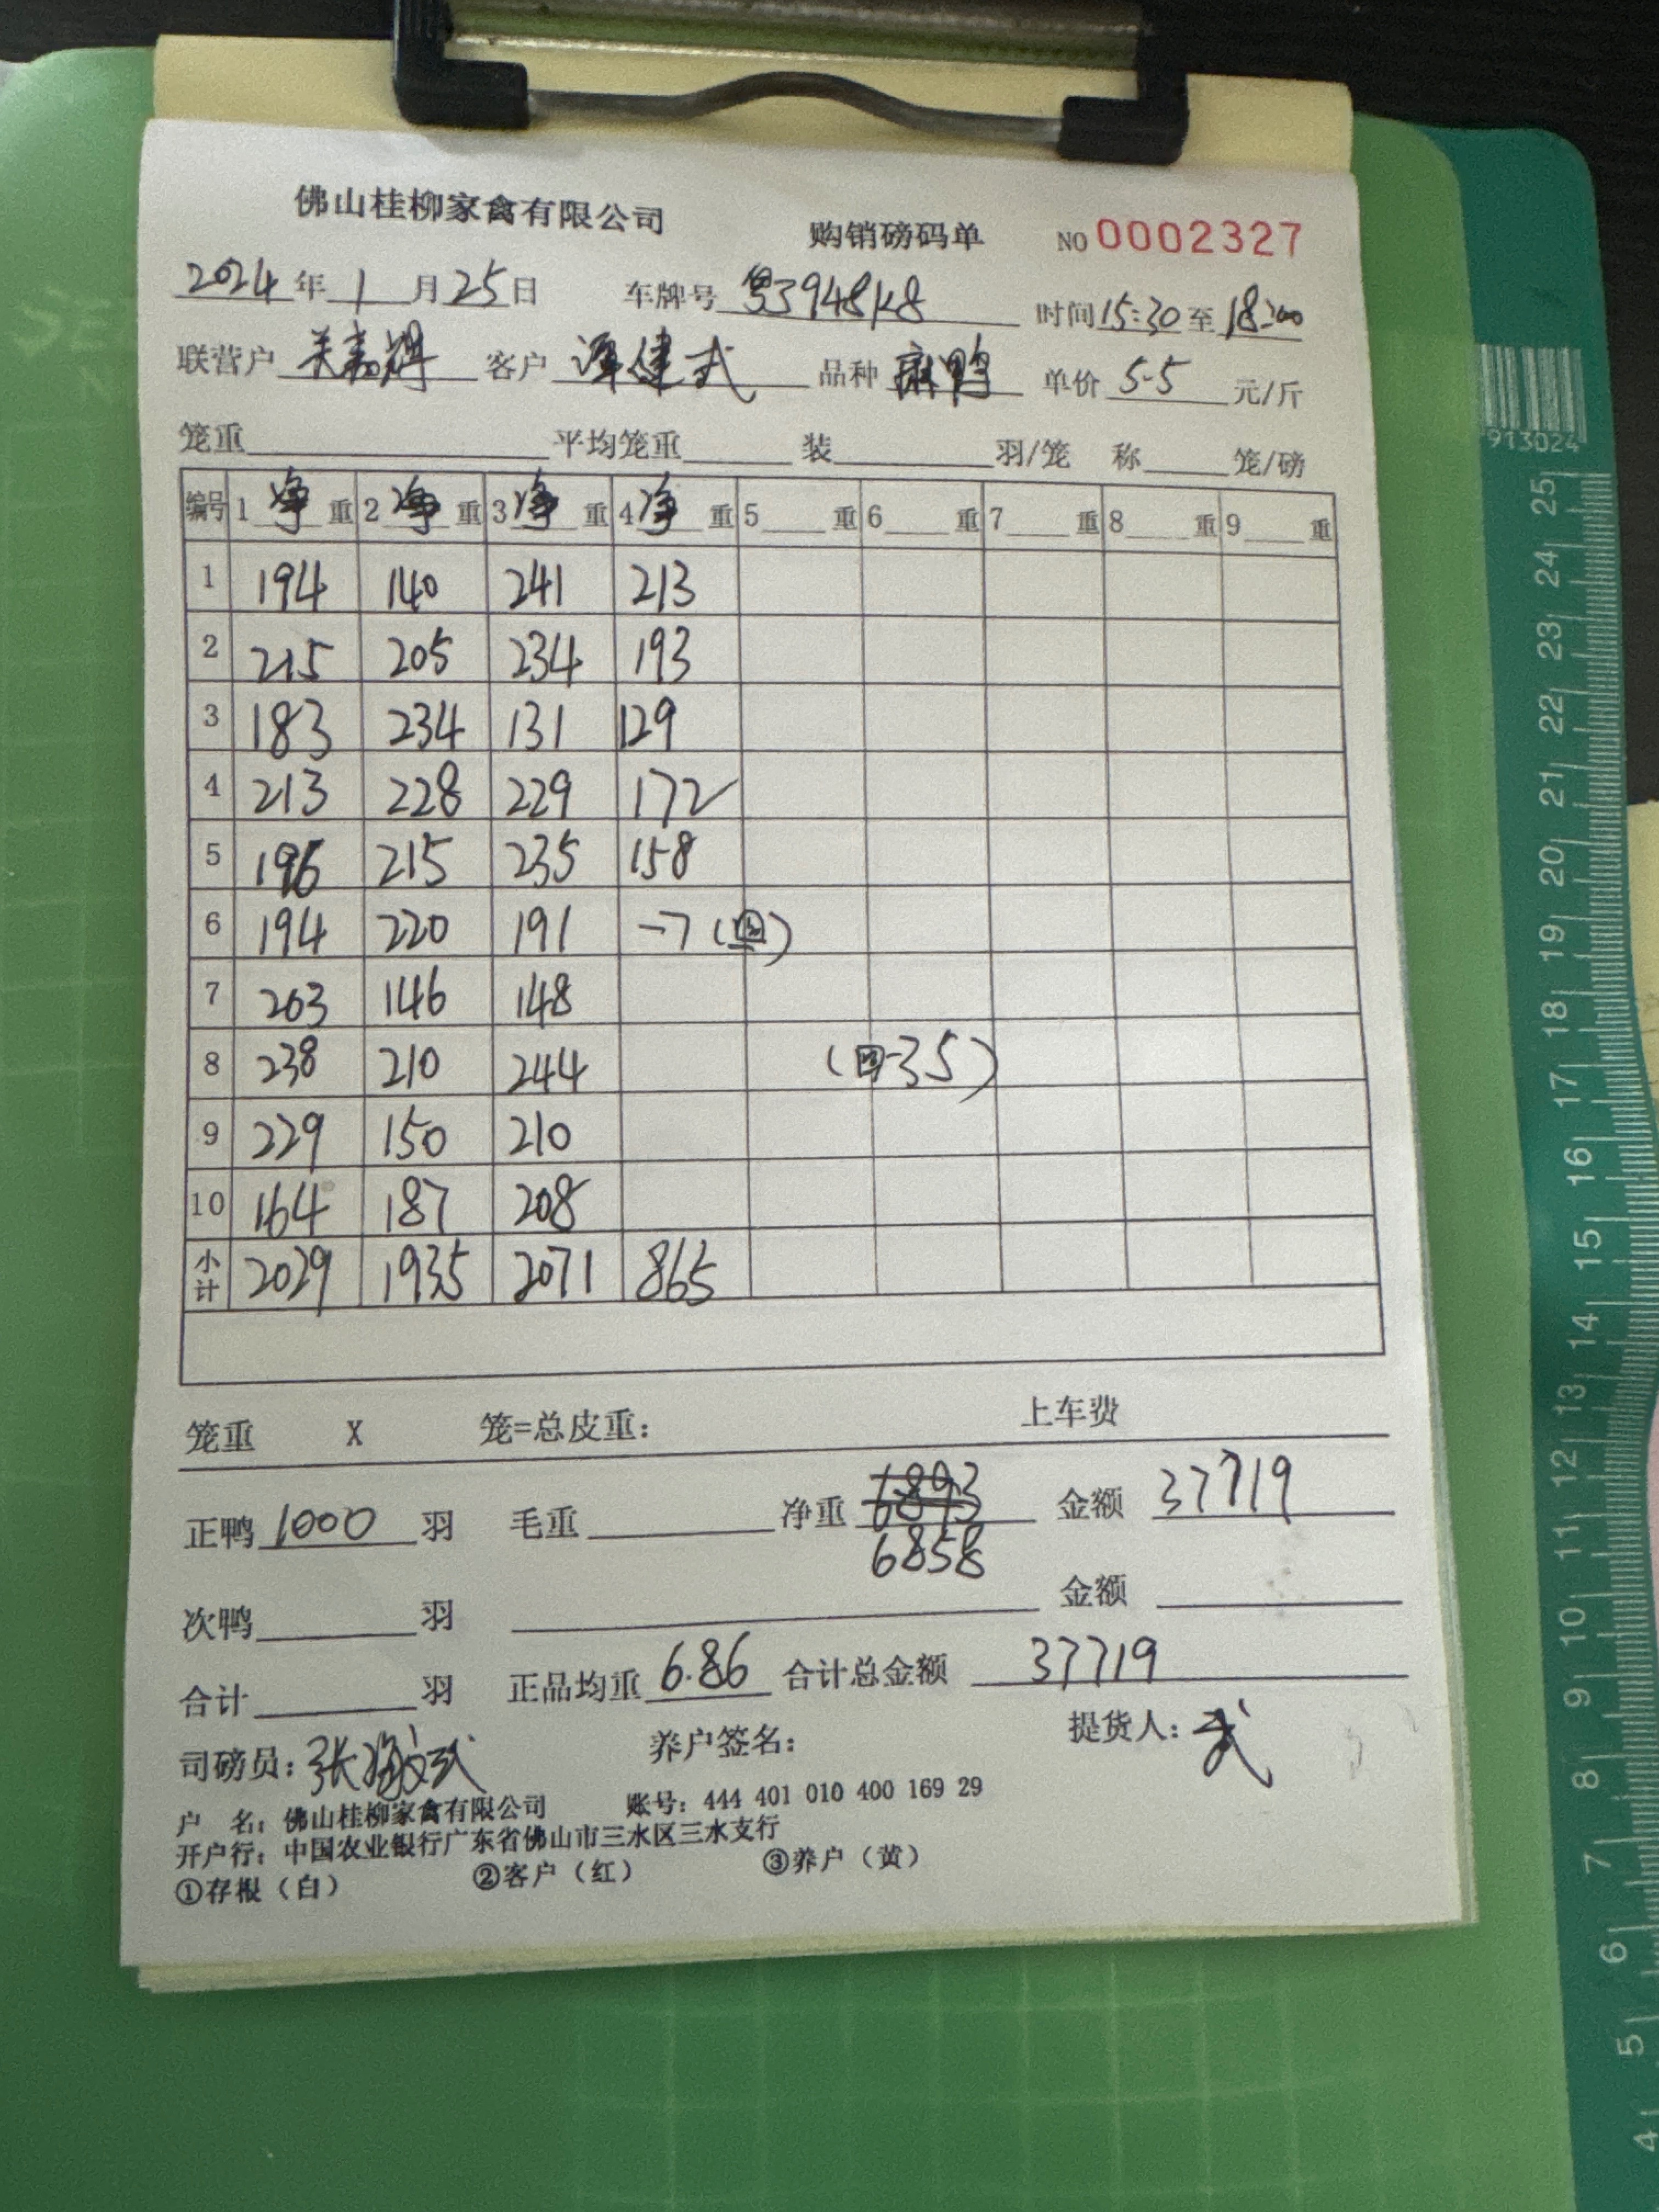 佛山桂柳家禽有限公司 购销磅码单 NO 0002327
2024年1月25日 车牌号 粤3948K8 时间15:30至18:00
联营户 关嘉辉 客户 谭建武 品种 麻鸭 单价 5.5 元/斤
笼重 平均笼重 装 羽/笼 称 笼/磅
编号 1 净 重 2 净 重 3 净 重 4 净 重 5 重 6 重 7 重 8 重 9 重
1 194 140 241 213
2 215 205 234 193
3 183 234 131 129
4 213 228 229 172
5 196 215 235 158
6 194 220 191 -7 ( )
7 203 146 148
8 238 210 244 ( -35)
9 229 150 210
10 164 187 208
小计 2029 1935 2071 865
笼重 X 笼=总皮重: 上车费
正鸭 1000 羽 毛重 净重 6893 金额 37719
6858
次鸭 羽 金额
合计 羽 正品均重 6.86 合计总金额 37719
司磅员: 张 养户签名: 提货人: 武
户 名: 佛山桂柳家禽有限公司 账号: 444 401 010 400 169 29
开户行: 中国农业银行广东省佛山市三水区三水支行
①存根（白） ②客户（红） ③养户（黄）
913024
25 24 23 22 21 20 19 18 17 16 15 14 13 12 11 10 9 8 7 6 5 4